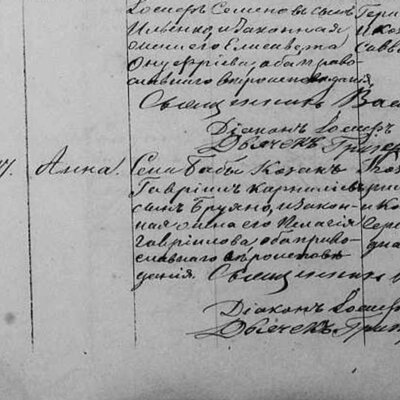 Іосифъ Семеновъ сынъ
Ильенко, и законная
жена его Елисавета
Онуфріева, оба право-
славнаго вѣроисповѣданія.
Священникъ Вас
Діаконъ Іосифъ
Дьячекъ Григор
Анна.
Села Бабы Козакъ
Гавріилъ Карниліевъ
сынъ Бруяко, и закон-
ная жена его Пелагія
Гавріилова, оба право-
славнаго вѣроисповѣ-
данія. Священникъ
Діаконъ Іосиф
Дьячекъ Григ